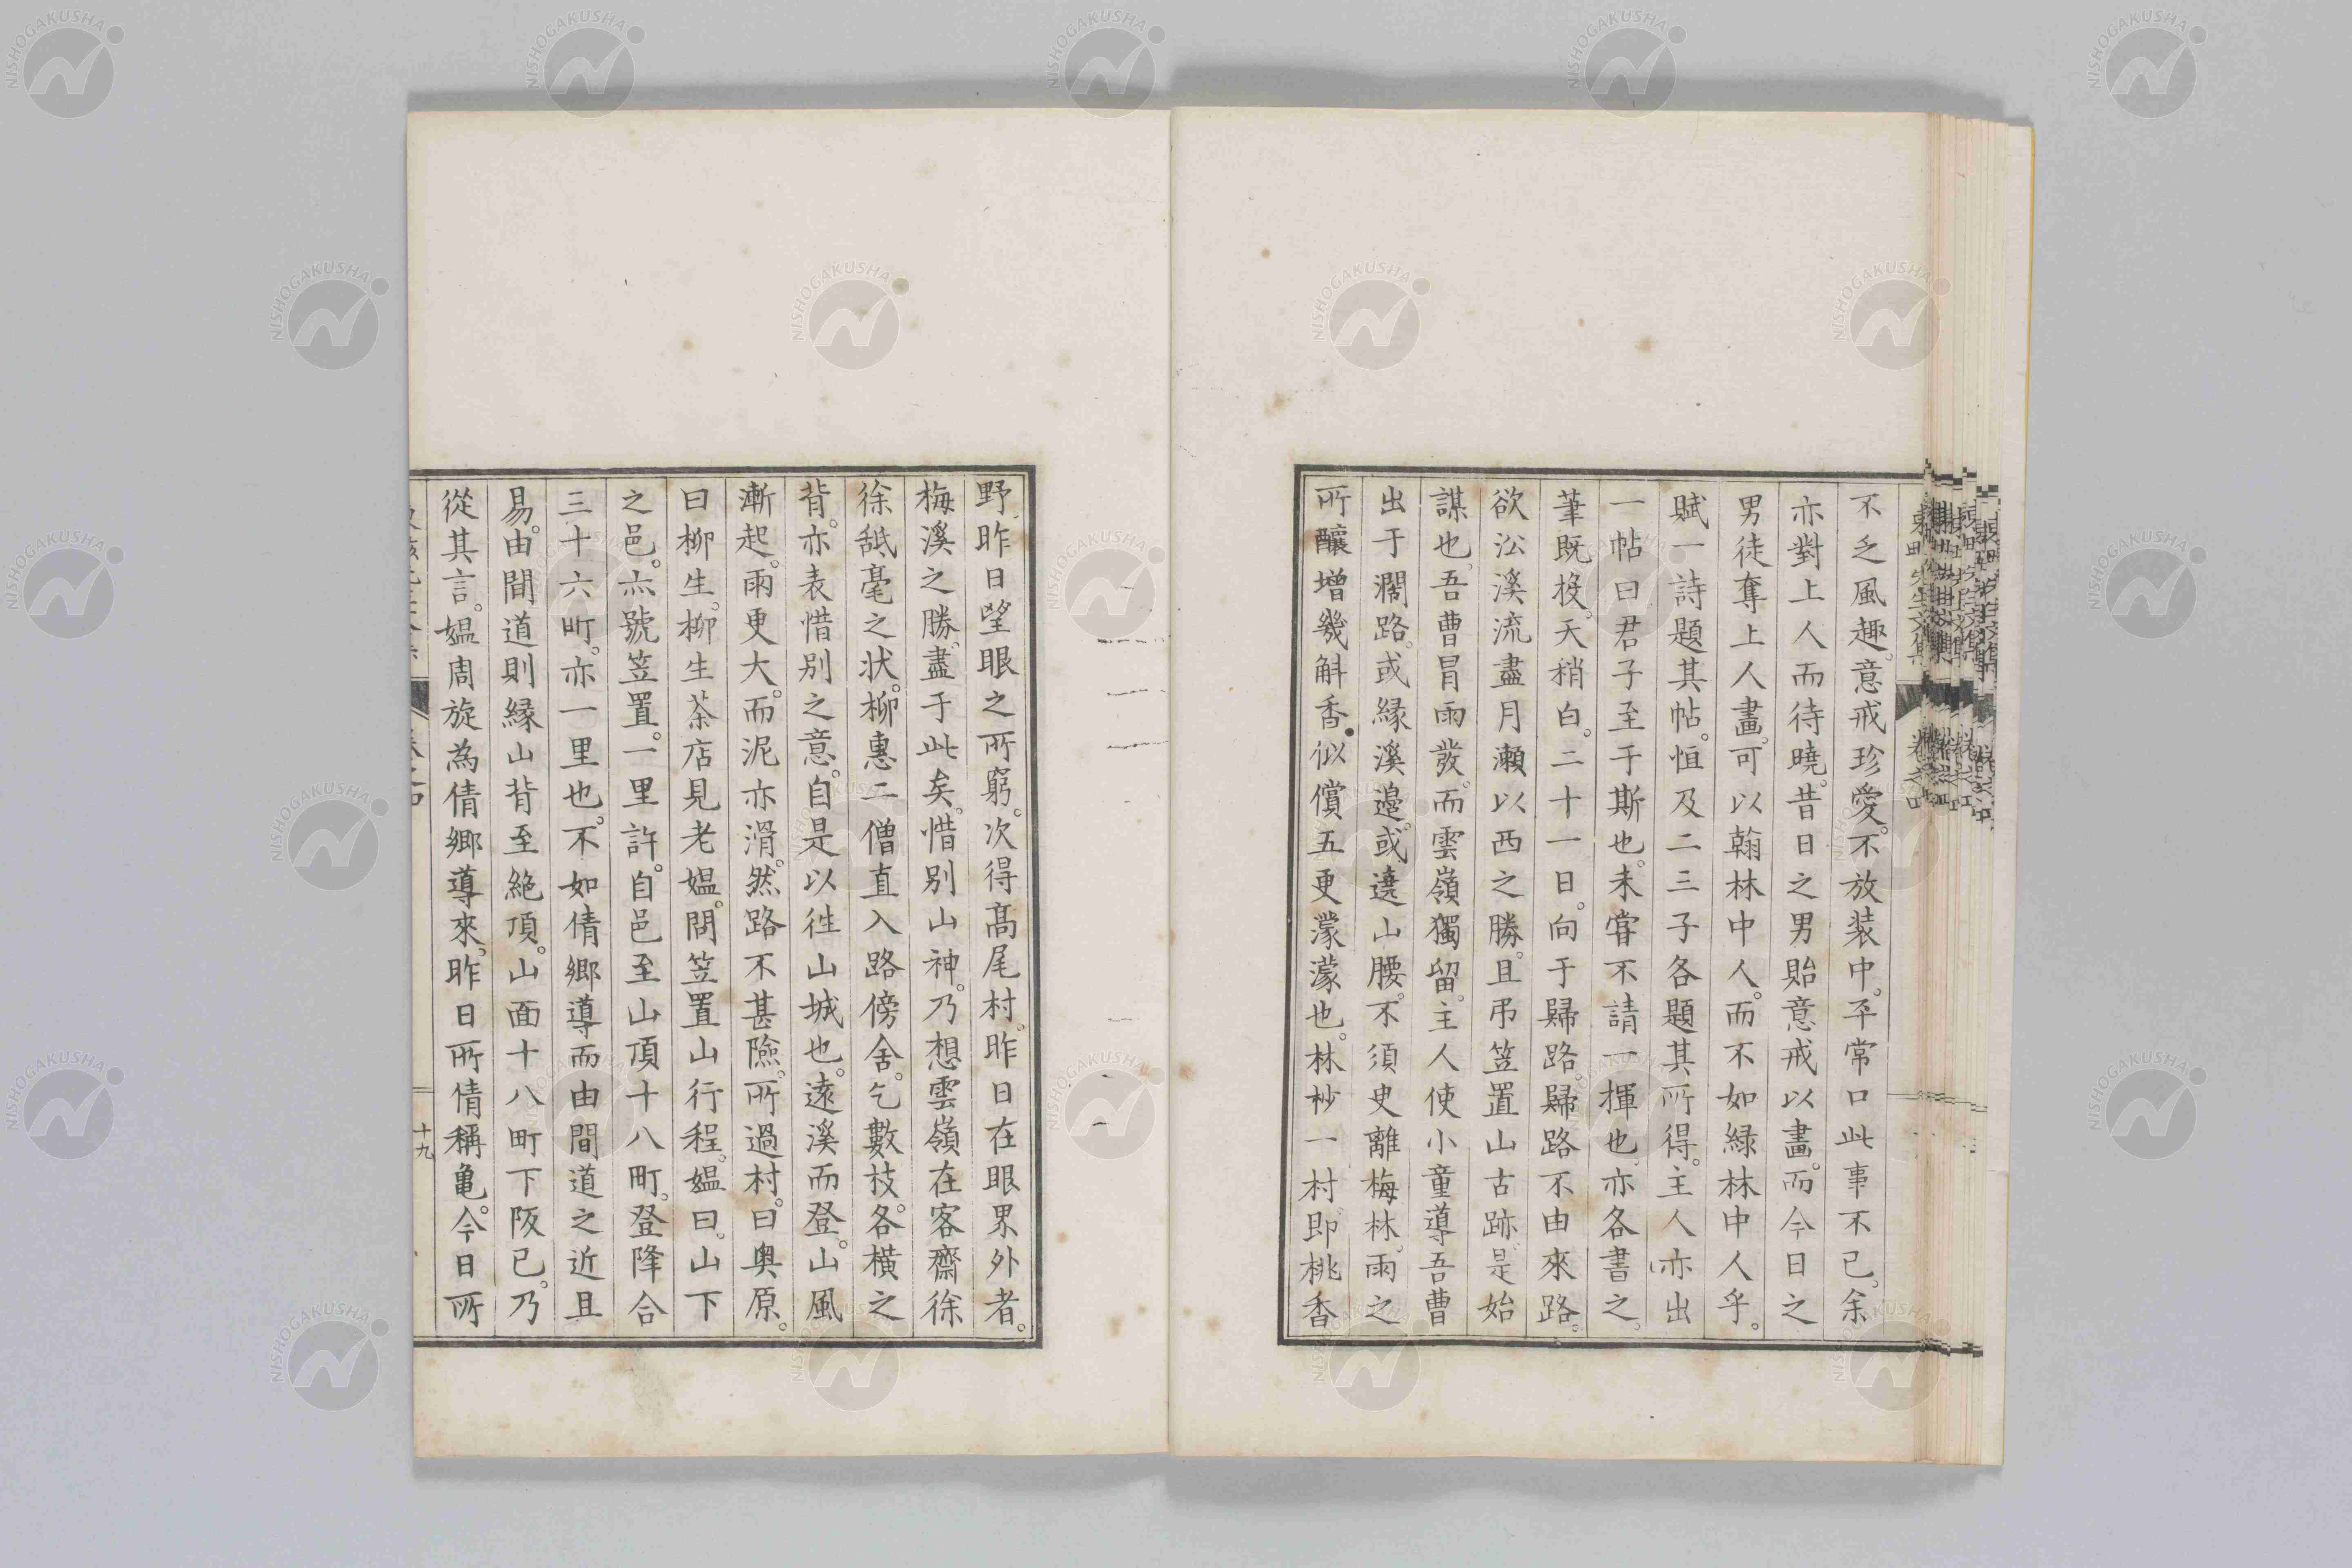 不乏風趣。意戒珍愛。不放装中。平常口此事不已。余
亦對上人而待曉。昔日之男貽意戒以畵。而今日之
男徒奪上人畵。可以翰林中人。而不如緑林中人乎。
賦一詩題其帖。恒及二三子各題其所得。主人亦出
一帖曰君子至于斯也。未甞不請一揮也。亦各書之。
筆既投。天稍白。二十一日。向于歸路。歸路不由來路。
欲㳂溪流盡月瀬以西之勝。且弔笠置山古跡。是始
謀也。吾曹冒雨發。而雲嶺獨留。主人使小童導吾曹
出于濶路。或縁溪邉。或遶山腰。不須臾離梅林。雨之
所釀增幾斛香。似償五更濛濛也。林杪一村。即桃香
野。昨日望眼之所窮。次得髙尾村。昨日在眼界外者。
梅溪之勝。盡于此矣。惜別山神。乃想雲嶺在客齋徐
徐舐毫之状。柳惠二僧直入路傍舍。乞數枝。各横之
背。亦表惜別之意。自是以徃山城也。遠溪而登。山風
漸起。雨更大。而泥亦滑。然路不甚險。所過村。曰奥原。
曰柳生。柳生茶店見老媼。問笠置山行程。媼曰。山下
之邑。亦號笠置。一里許。自邑至山頂十八町。登降合
三十六町。亦一里也。不如倩郷導而由間道之近且
易。由間道則縁山背至絶頂。山面十八町下阪已。乃
從其言。媼周旋為倩郷導來。昨日所倩稱亀。今日所
十九
NISHOGAKUSHA